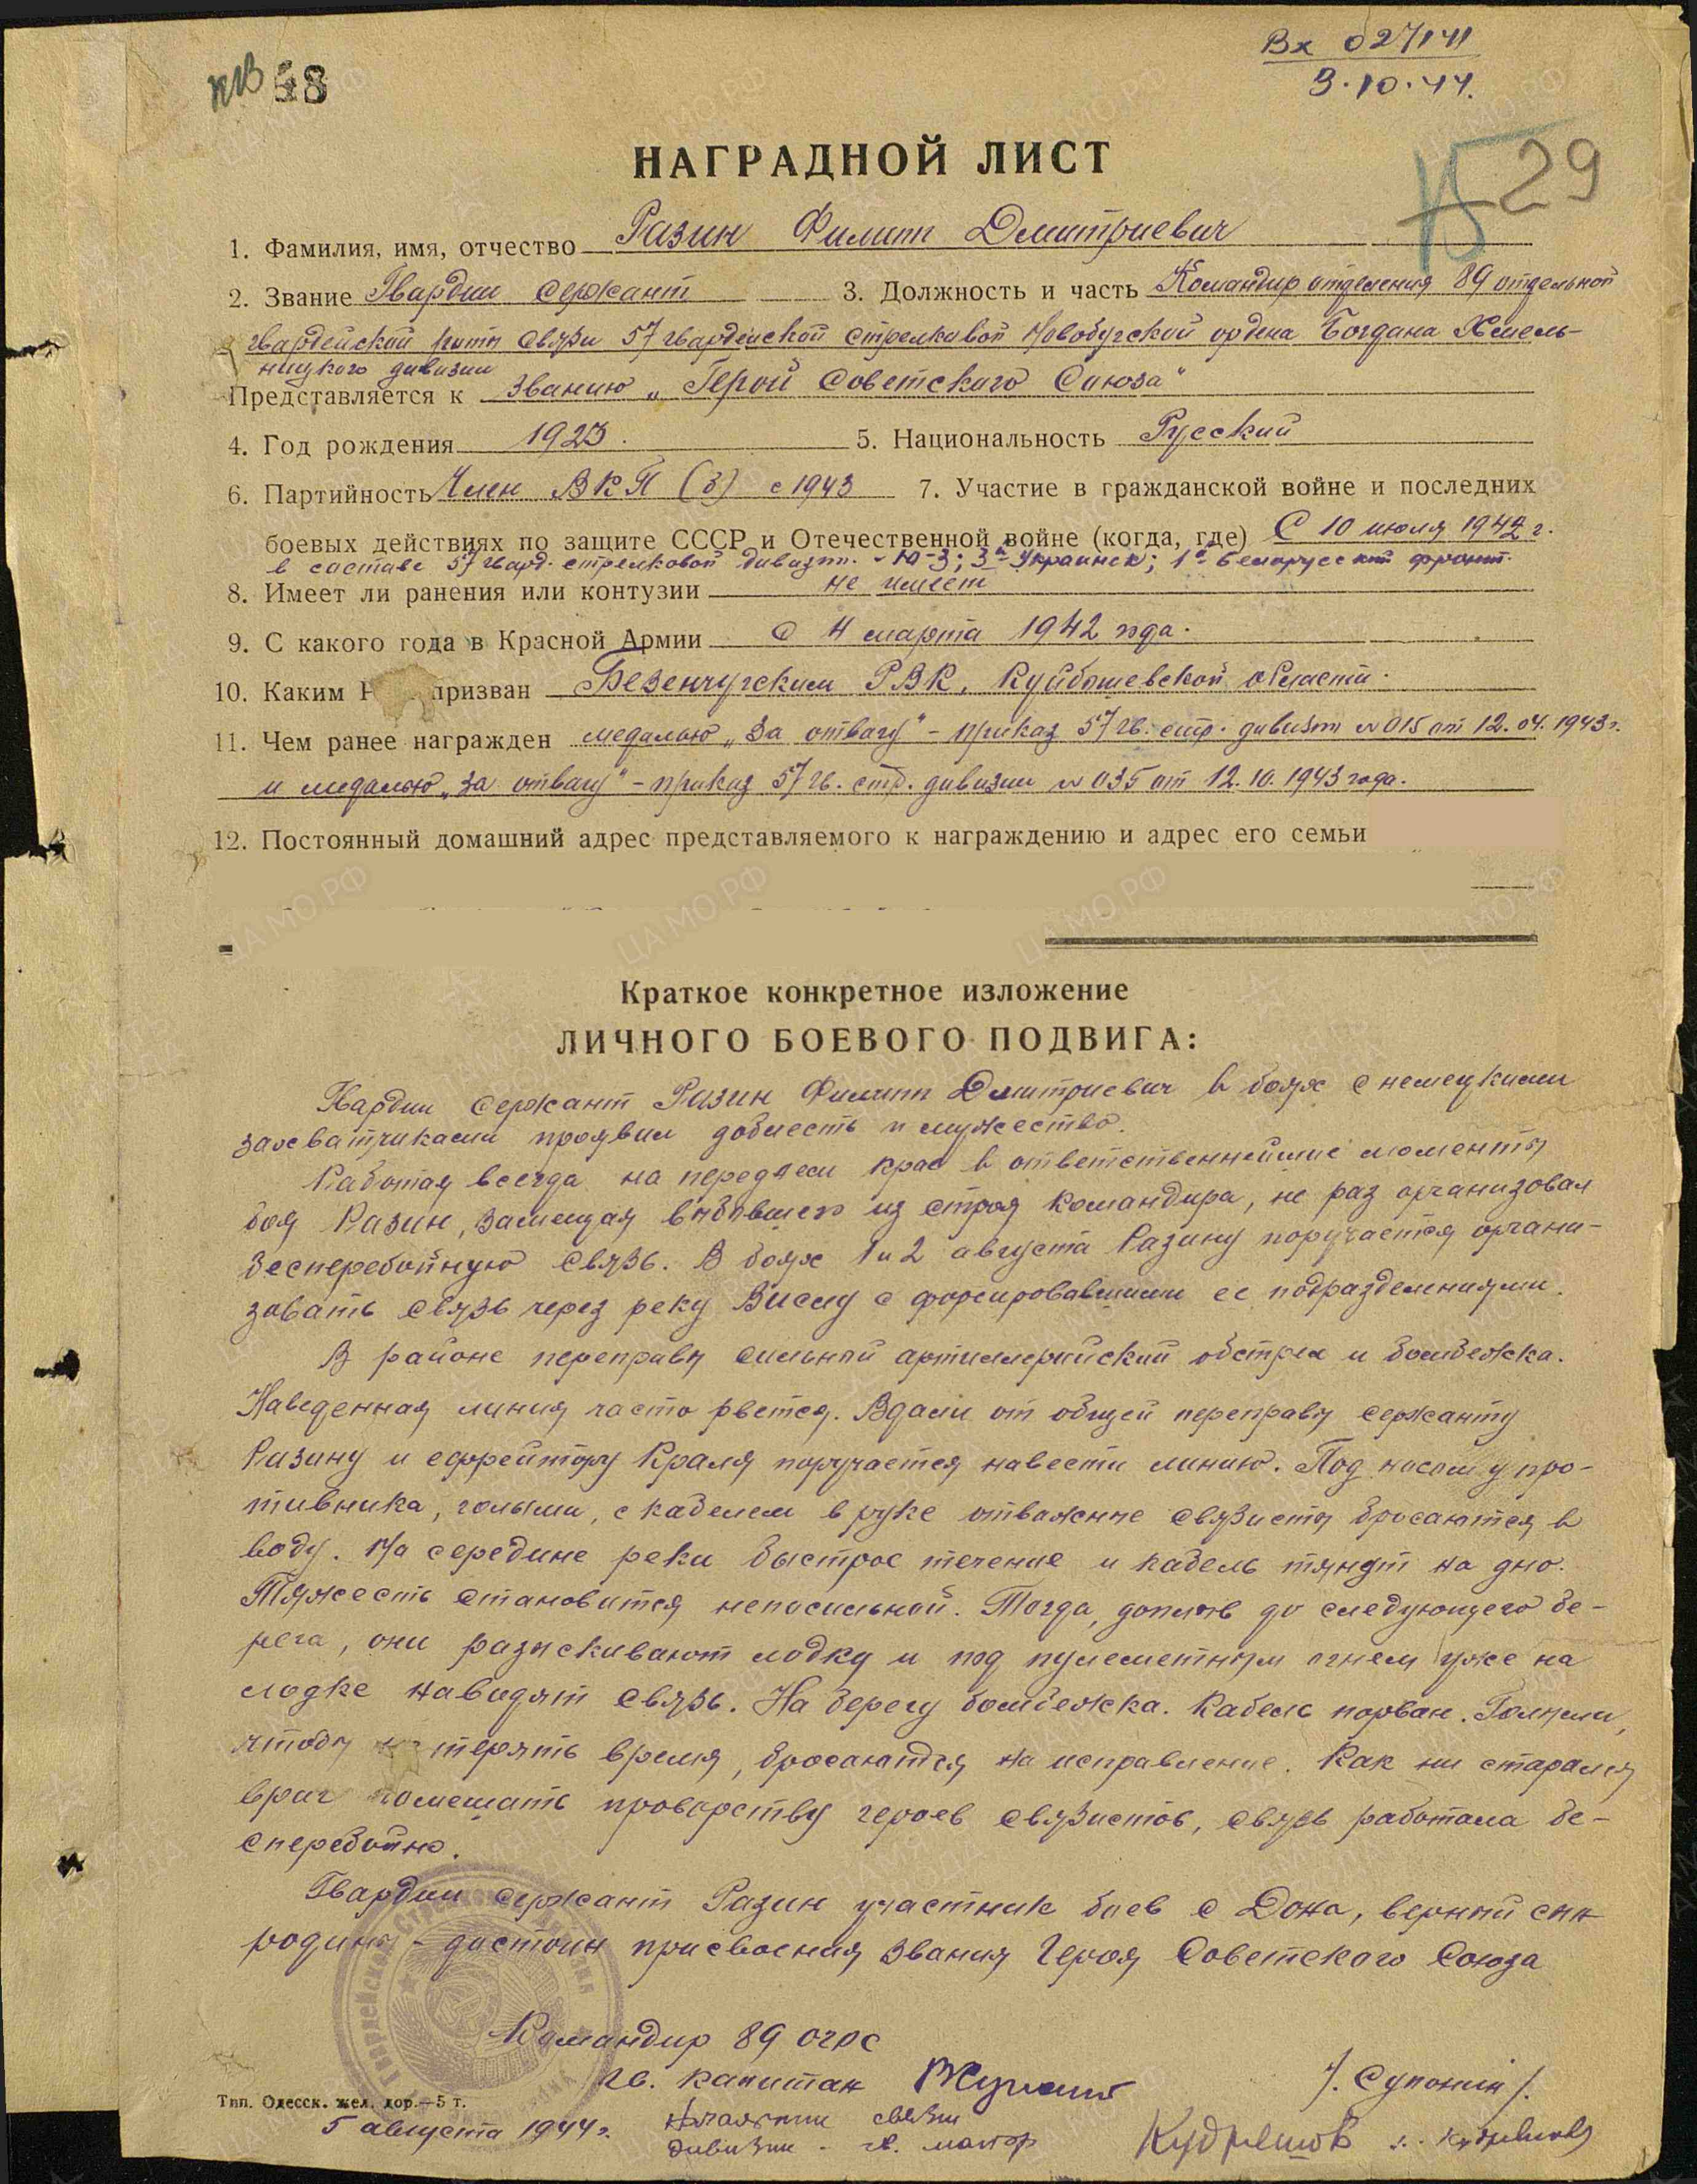 Вх 027141
3.10.44.
58
15 29
НАГРАДНОЙ ЛИСТ
1. Фамилия, имя, отчество Разин Филипп Дмитриевич
2. Звание Гвардии сержант 3. Должность и часть Командир отделения 89 отдельной
гвардейской роты связи 57 гвардейской стрелковой Новобугской ордена Богдана Хмель-
ницкого дивизии
Представляется к званию „Герой Советского Союза"
4. Год рождения 1923. 5. Национальность Русский
6. Партийность Член ВКП(б) с 1943 7. Участие в гражданской войне и последних
боевых действиях по защите СССР и Отечественной войне (когда, где) С 10 июля 1942 г.
в составе 57 гвард. стрелковой дивизии. - Ю-З; 3й Украинск; 1й Белорусский фронт.
8. Имеет ли ранения или контузии не имеет
9. С какого года в Красной Армии С 4 марта 1942 года.
10. Каким призван Безенчугским РВК, Куйбышевской области.
11. Чем ранее награжден медалью „За отвагу" - приказ 57 гв. стр. дивизии №015 от 12.04.1943г.
и медалью „За отвагу" - приказ 57 гв. стр. дивизии №035 от 12.10.1943 года.
12. Постоянный домашний адрес представляемого к награждению и адрес его семьи
Краткое конкретное изложение
ЛИЧНОГО БОЕВОГО ПОДВИГА:
Гвардии сержант Разин Филипп Дмитриевич в боях с немецкими
захватчиками проявил доблесть и мужество.
Работая всегда на переднем крае в ответственнейшие моменты
боя Разин, замещая выбывшего из строя командира, не раз организовал
бесперебойную связь. В боях 1 и 2 августа Разину поручается органи-
зовать связь через реку Вислу с форсировавшими ее подразделениями.
В районе переправы сильный артиллерийский обстрел и бомбежка.
Наведенная линия часто рвется. Вдали от общей переправы сержанту
Разину и ефрейтору Краля поручается навести линию. Под носом у про-
тивника, голыми, с кабелем в руке отважные связисты бросаются в
воду. На середине реки быстрое течение и кабель тянет на дно.
Тяжесть становится непосильной. Тогда, доплыв до следующего бе-
рега, они разыскивают лодку и под пулеметным огнем уже на
лодке наводят связь. На берегу бомбежка. Кабель порван. Голыми,
чтобы не терять время, бросаются на исправление. Как ни старался
враг помешать проворству героев связистов, связь работала бе-
сперебойно.
Гвардии сержант Разин участник боев с Дона, верный сын
родины - достоин присвоения звания Героя Советского Союза
Командир 89 огрс
гв. капитан /. Супонин /.
Тип. Одесск. жел. дор.—5 т.
5 августа 1944г. Начальник связи
дивизии - гв. майор Кудряшов